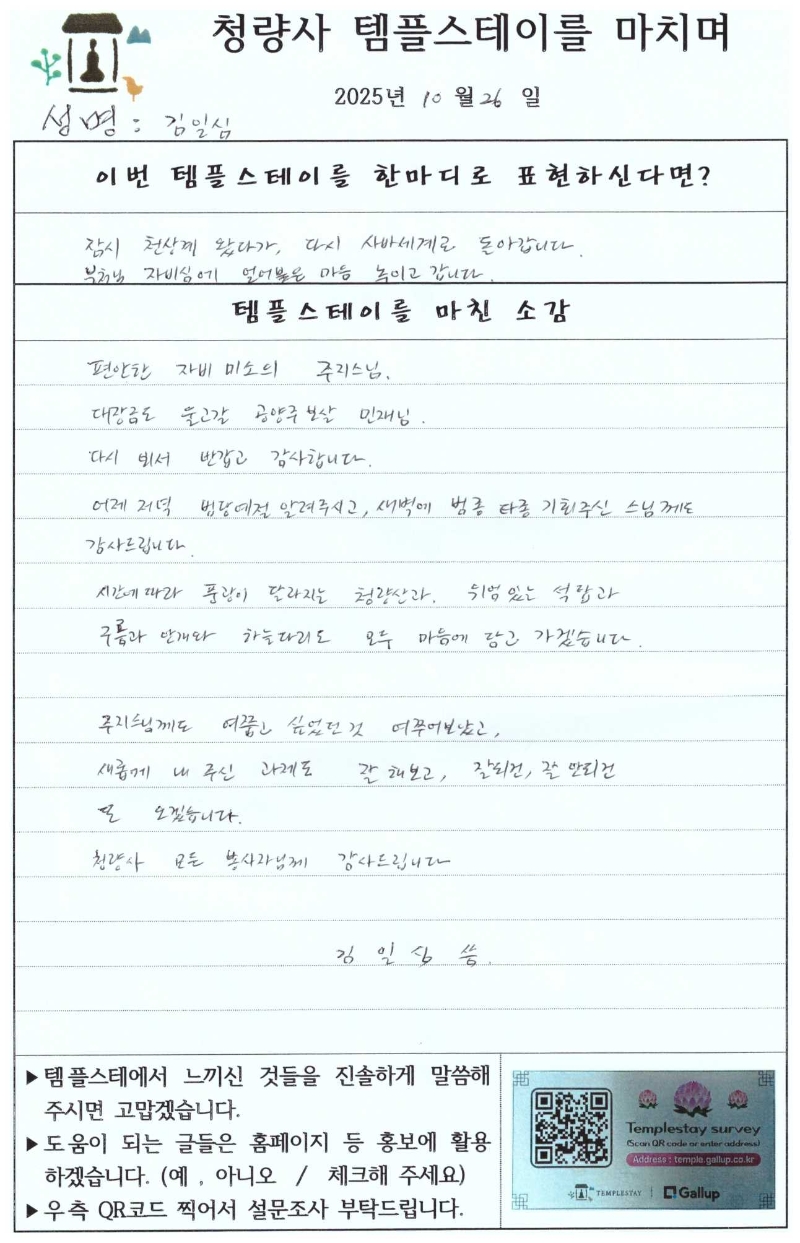 청량사 템플스테이를 마치며
2025년 10 월 26 일
성명 : 김일심
이번 템플스테이를 한마디로 표현하신다면?
잠시 천상계 왔다가, 다시 사바세계로 돌아갑니다.
부처님 자비심에 얼어붙은 마음 녹이고 갑니다.
템플스테이를 마친 소감
편안한 자비 미소의 주지스님.
대장금도 울고갈 공양주 보살 민재님.
다시 뵈서 반갑고 감사합니다.
어제 저녁 법당예절 알려주시고, 새벽에 범종 타종 기회주신 스님께도
감사드립니다.
시간에 따라 풍광이 달라지는 청량산과. 위엄있는 석탑과
구름과 안개와 하늘다리도 모두 마음에 담고 가겠습니다.
주지스님께도 여쭙고 싶었던 것 여쭈어보았고,
새롭게 내 주신 과제도 잘 해보고, 잘되건, 잘 안되건
또 오겠습니다.
청량사 모든 봉사자님께 감사드립니다
김 일 심 씀.
▶템플스테에서 느끼신 것들을 진솔하게 말씀해
주시면 고맙겠습니다.
▶도움이 되는 글들은 홈페이지 등 홍보에 활용
하겠습니다. (예 , 아니오 / 체크해 주세요)
▶우측 QR코드 찍어서 설문조사 부탁드립니다.
Templestay survey
(Scan QR code or enter address)
Address : temple.gallup.co.kr
TEMPLESTAY | Gallup